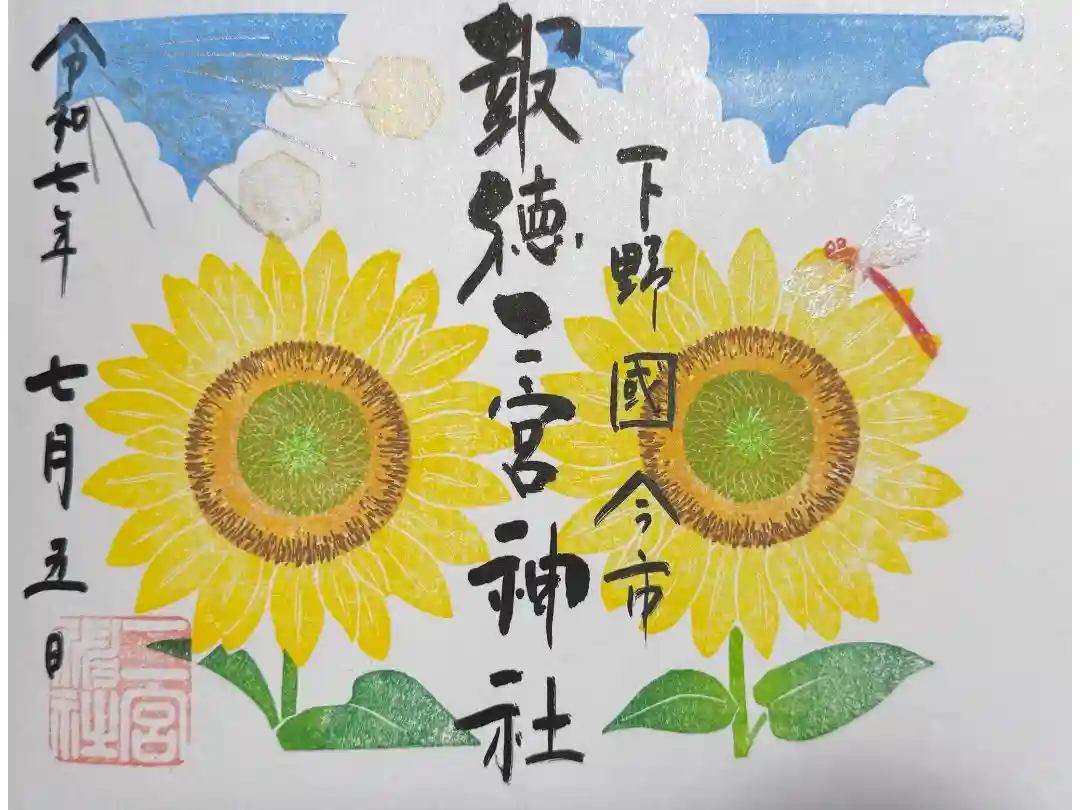 下野國今市
報徳二宮神社
令和七年 七月五日
二宮神社